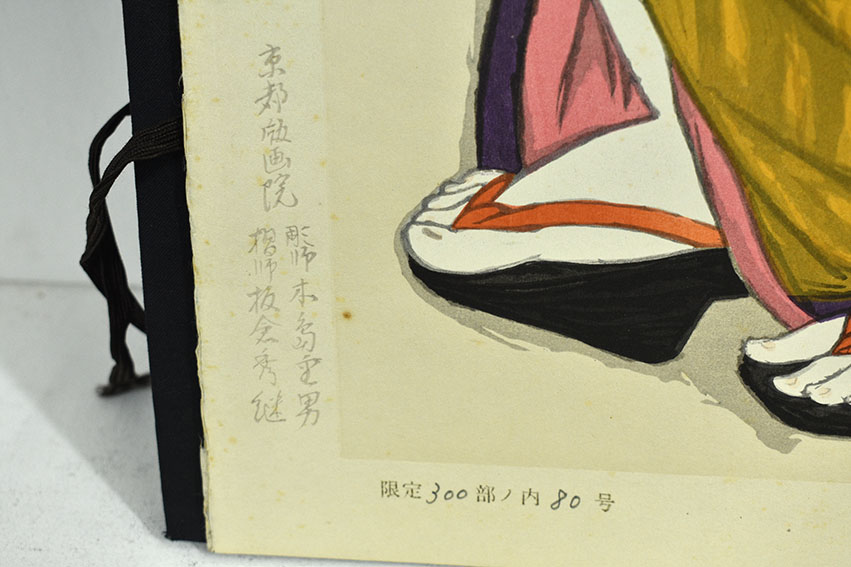 京都版画院
彫師木島重男
摺師板倉秀継
限定300部ノ内80号